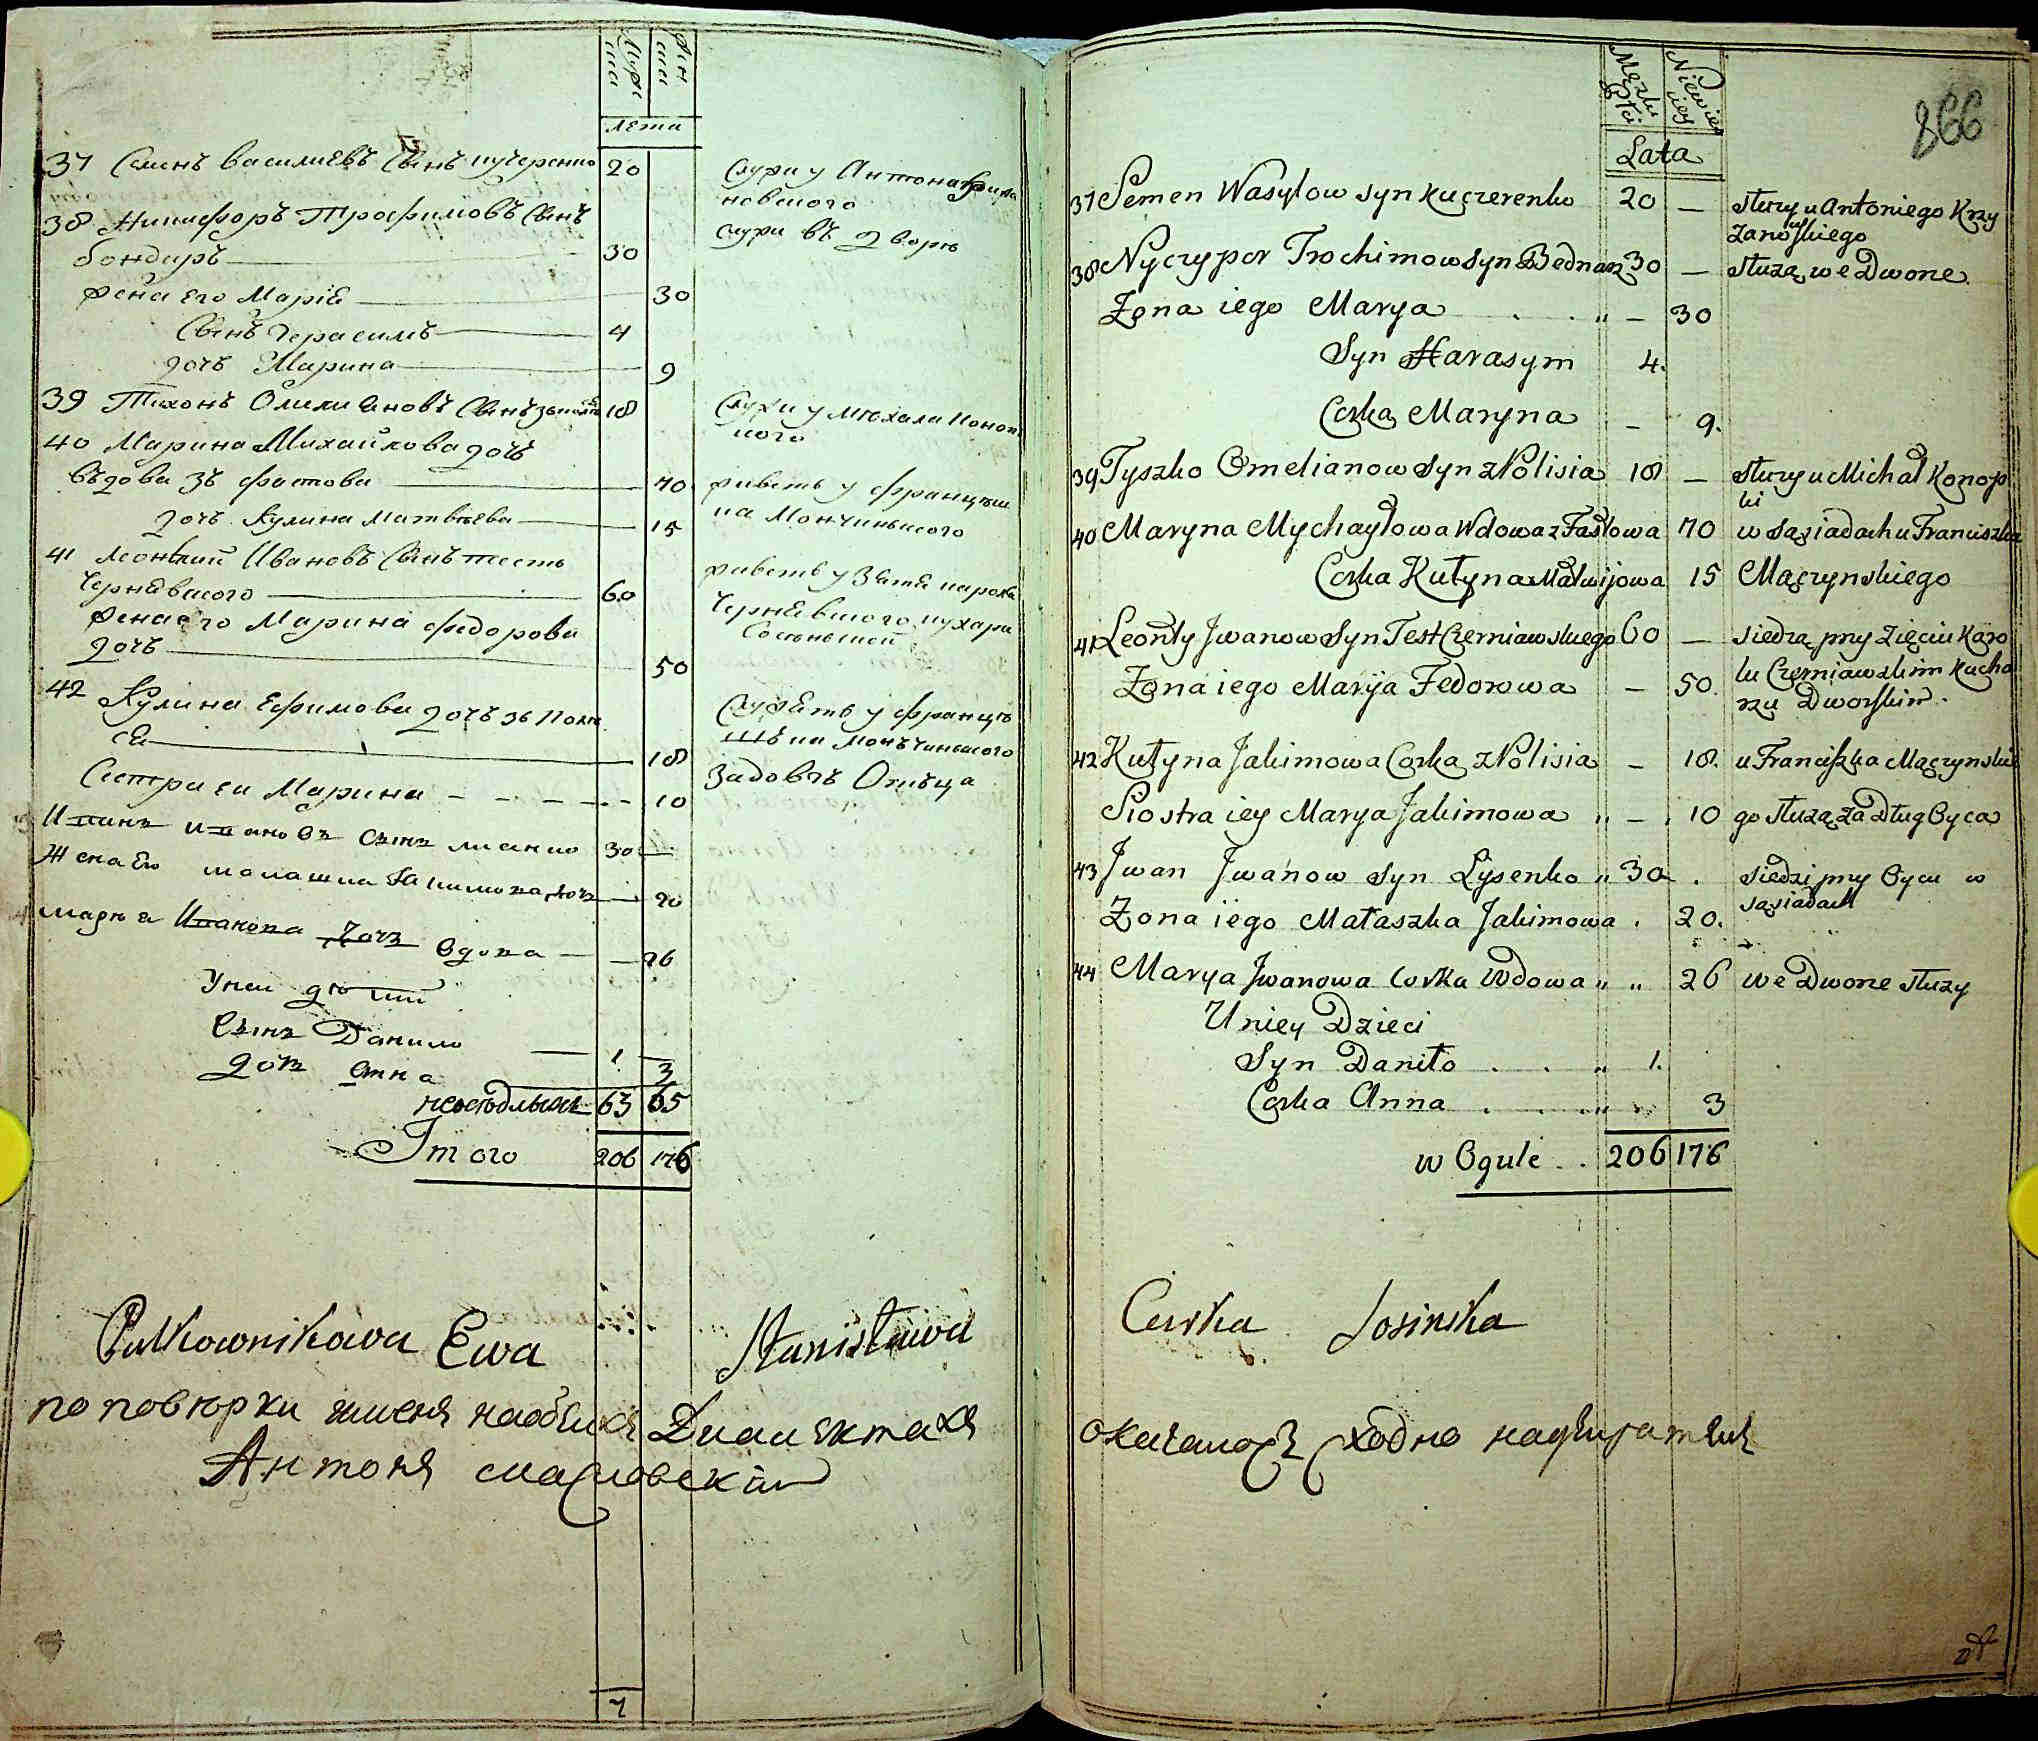 Мужс
ка
Жен
ска
лета
37 Семенъ Василиевъ Сынъ кучеренко 20 Служи у Антона Крижа
новского
38 Никифоръ Трофимовъ Сынъ
бондаръ 30 служи въ дворѣ
жена его Маріѧ 30
Сынъ Герасимъ 4
дочь Марина 9
39 Тихонъ Омелиѧновъ Сынъ 18 Служи у Михала Коноп
кого
40 Марина Михайлова дочь
въдова зъ Фастова 70 живетъ у Францѣш
дочь Кулина Матвѣева 15 ка Мончинького
41 Леонтий Ивановъ Сынъ тесть
Чернѧвского 60 живетъ у Зѧтѧ кароля
жена его Марина Федорова Чернѧвского кухара
дочь 50
42 Кулина Ефимова дочь зъ Поли
сѧ 18 Служѧтъ у Францѣ
шка Монъчинского
Сестра еи Марина 10 задовгъ Отьца
Иванъ Ивановъ сынъ лисенко 30 —
Жена Ево малашка Якимова дочь — 20
марья Иванова дочь вдова — 26
Унеи дѣтии
Сынъ Данило 1
дочь Анна 3
неоседлыхъ 63 65
Итого 206 176
Pułkownikowa Ewa Stanisława
по поверки имена наобеихъ Диалектахъ
Антонъ Масловский
7
866
Męzki
Płci
Niewie
sciey
Lata
37 Semen Wasylow syn Kuczerenko 20 — służy u Antoniego Krzy
zanowskiego
38 Nyczypor Trochimow syn Bednarz 30 — służą we Dworze
Zona iego Marya „ — 30
Syn Harasym 4.
Corka Maryna — 9.
39 Tyszko Omelianow syn z Polisia 18 — służy u Michał Konop
ki
40 Maryna Mychayłowa Wdowa z Fastowa 70 w sąsiadach u Franciszka
Corka Kułyna Matwijowa 15 Mączynskiego
41 Leonty Jwanow Syn Test Czerniawskiego 60 — siedzą przy zięciu Karo
lu Czerniawskim Kucha
Zona iego Maryja Fedorowa — 50.
rzu Dworskim.
42 Kułyna Jakimowa Corka z Polisia — 18. u Franciszka Mączynskie
Siostra iey Marya Jakimowa „ — . 10 go służą za Dług Oyca
43 Jwan Jwanow syn Lysenko „ 30 . siedzi przy Oycu w
sąsiadach
Zona iego Małaszka Jakimowa . 20.
44 Marya Jwanowa Corka Wdowa „ „ 26 we Dworze służy
U niey Dzieci
Syn Daniło . . „ 1.
Corka Anna . . . 3
w Ogule . . 206 176
Curka Josinska
оказалось сходно надзиратель